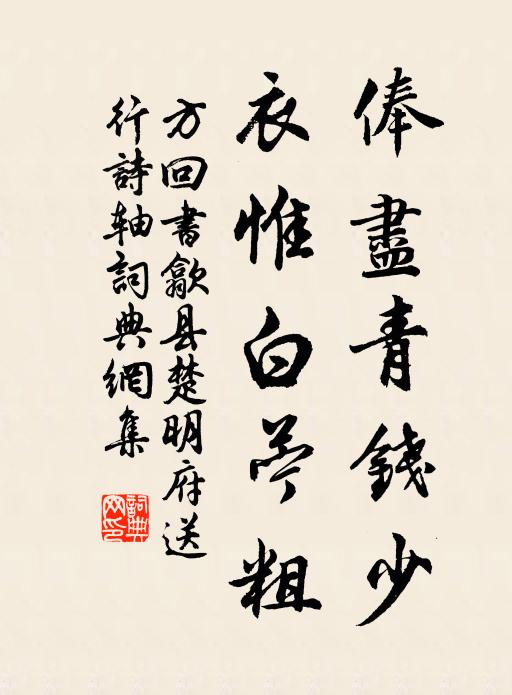 俸盡青錢少
衣惟白苧粗
方回書歙县楚明府送
行詩轴詞典網集
詞典網印